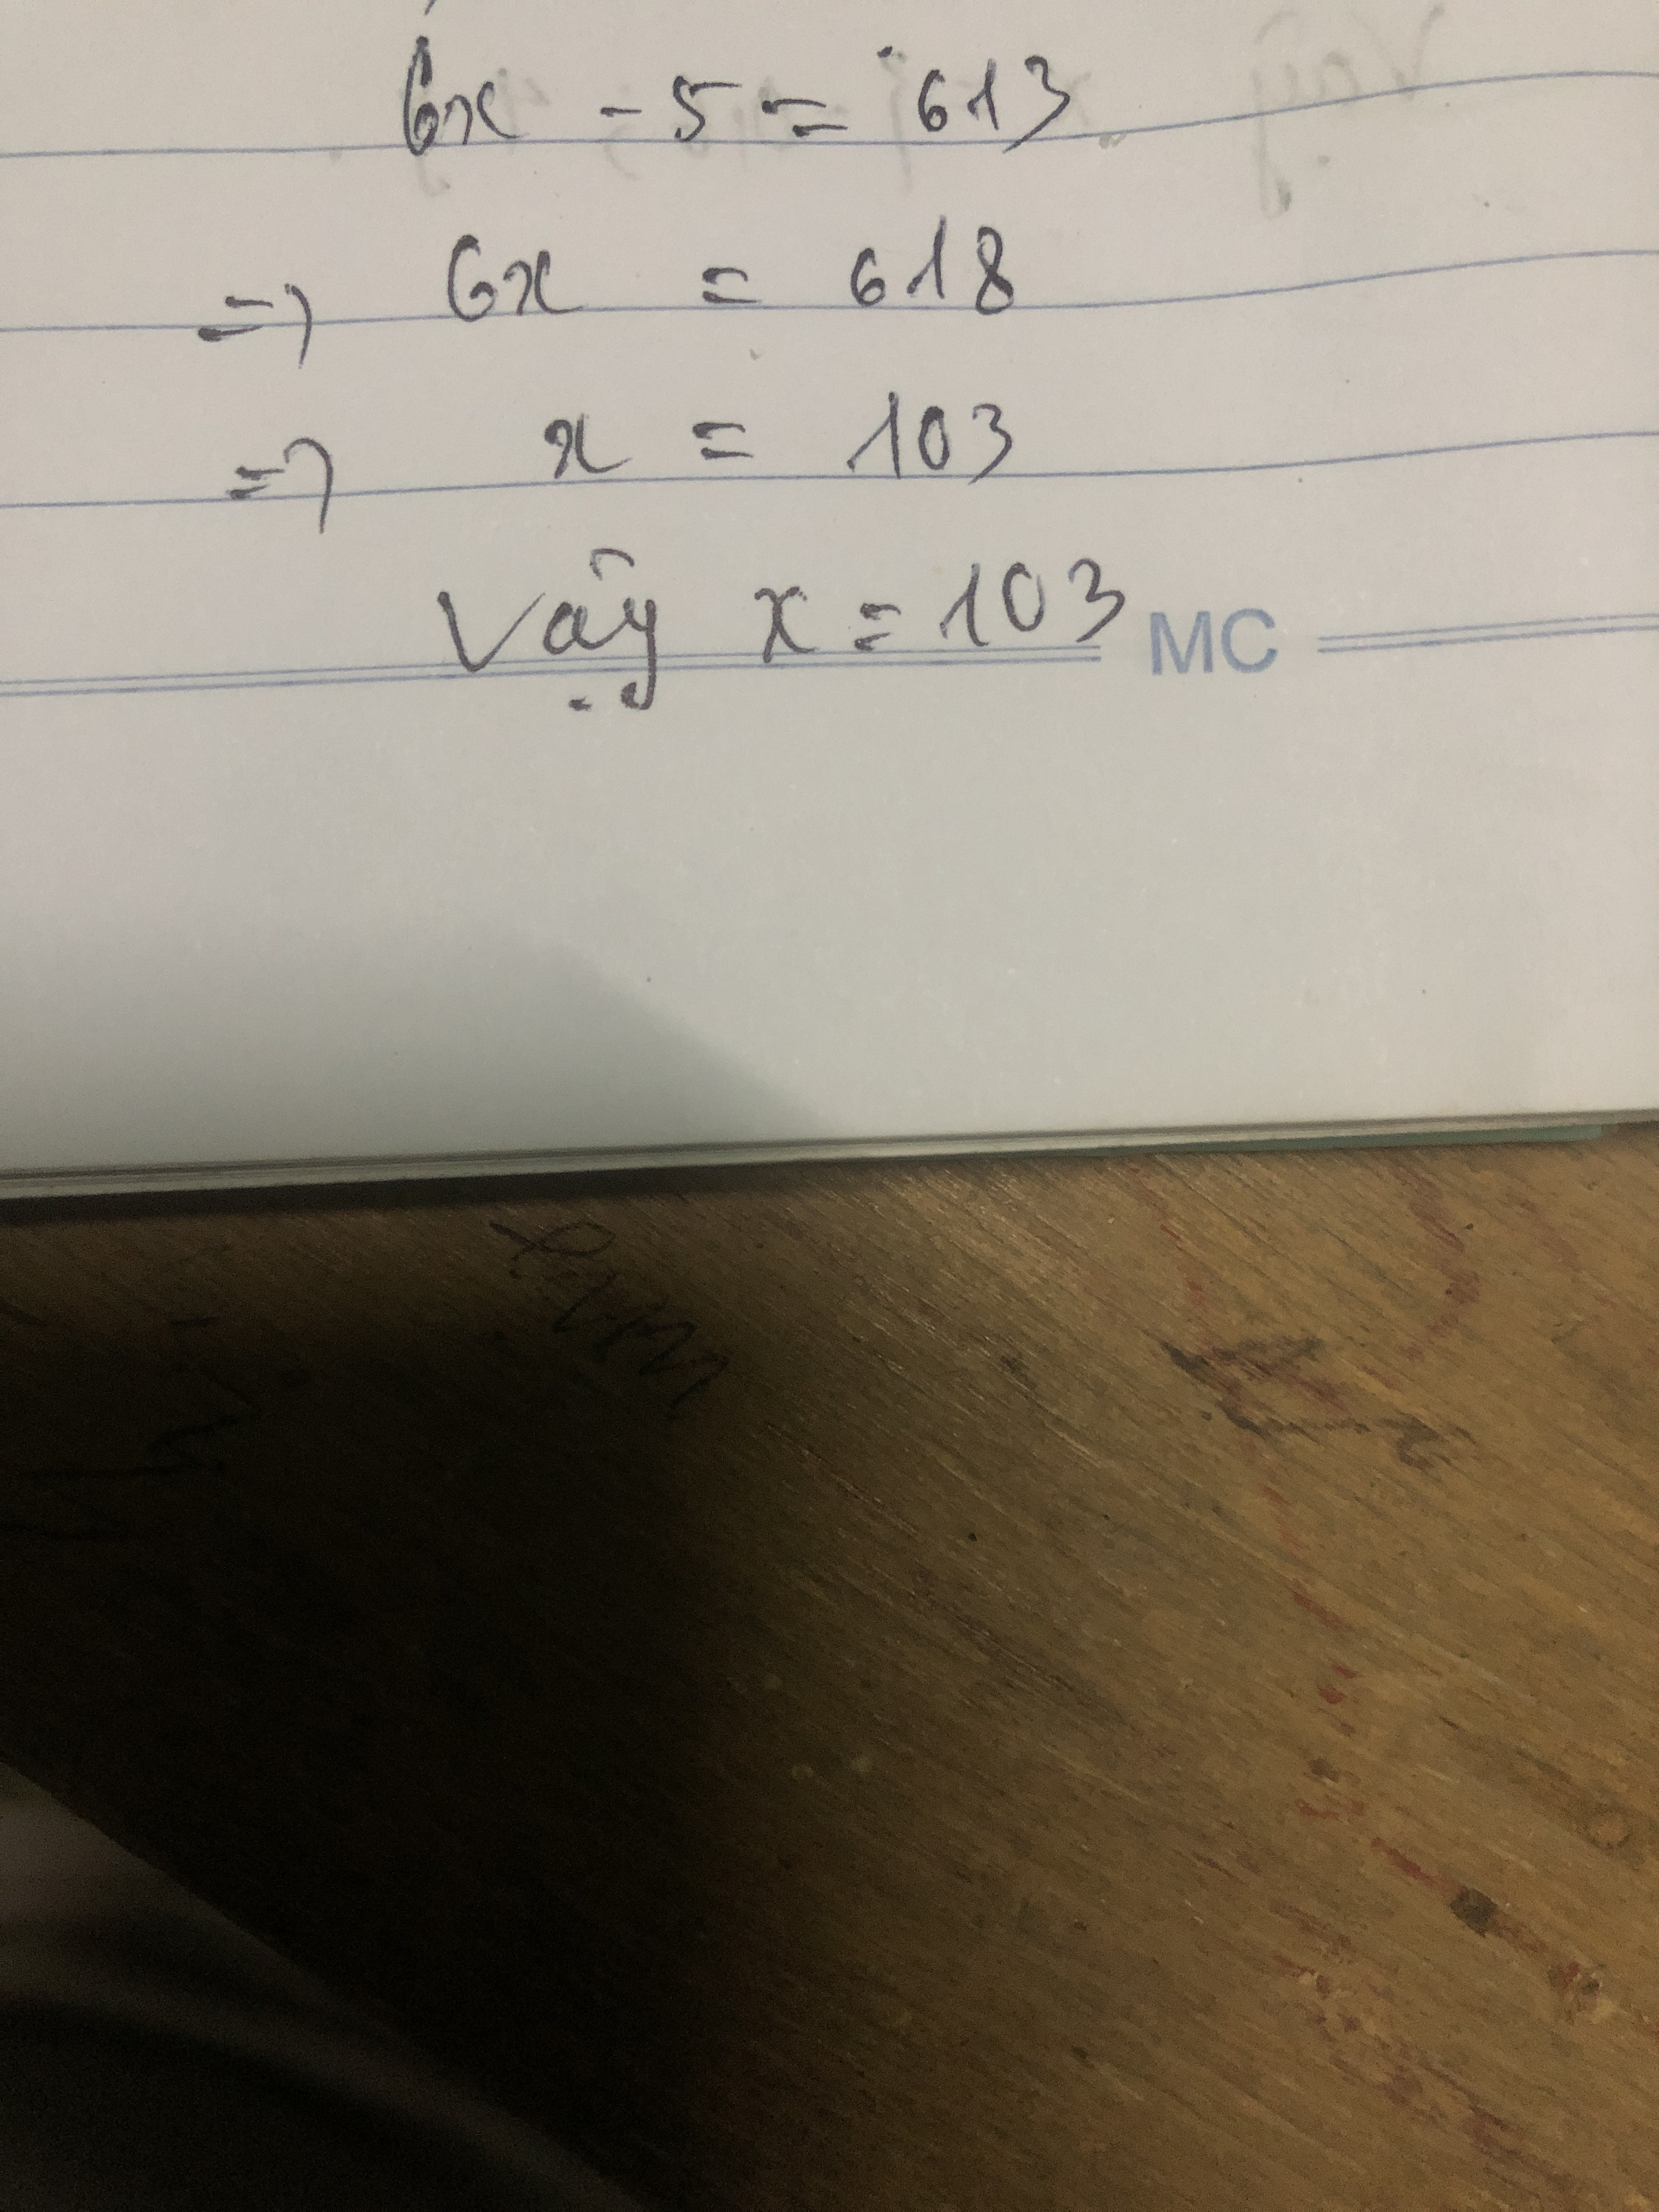 6x - 5 = 613
=> 6x = 618
=> x = 103
Vậy x = 103 MC